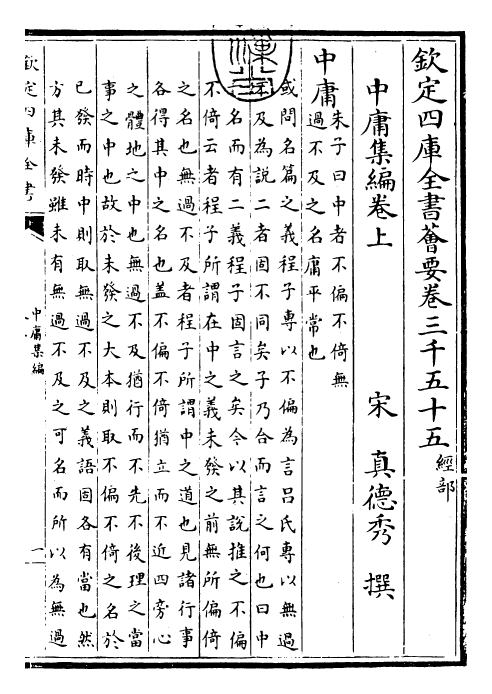 欽定四庫全書薈要卷三千五十五 經部
中庸集編卷上
宋 真德秀 撰
中庸 朱子曰中者不偏不倚無
過不及之名庸平常也
或問名篇之義程子專以不偏為言吕氏專以無過
不及為說二者固不同矣子乃合而言之何也曰中
一名而有二義程子固言之矣今以其說推之不偏
不倚云者程子所謂在中之義未發之前無所偏倚
之名也無過不及者程子所謂中之道也見諸行事
各得其中之名也盖不偏不倚猶立而不近四旁心
之體地之中也無過不及猶行而不先不後理之當
事之中也故於未發之大本則取不偏不倚之名於
已發而時中則取無過不及之義語固各有當也然
方其未發雖未有無過不及之可名而所以為無過
欽定四庫全書
中庸集編
一